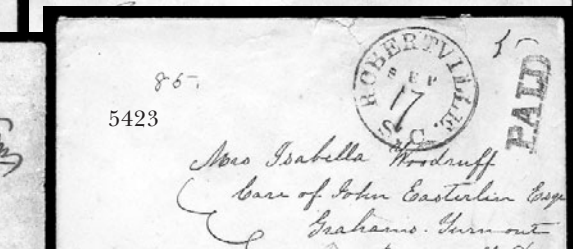 ROBERTVILLE S.C.
SEP
17
5
PAID
85.
5423
Mrs Isabella Woodruff
Care of John Easterlin Esqr
Grahams. Turn out